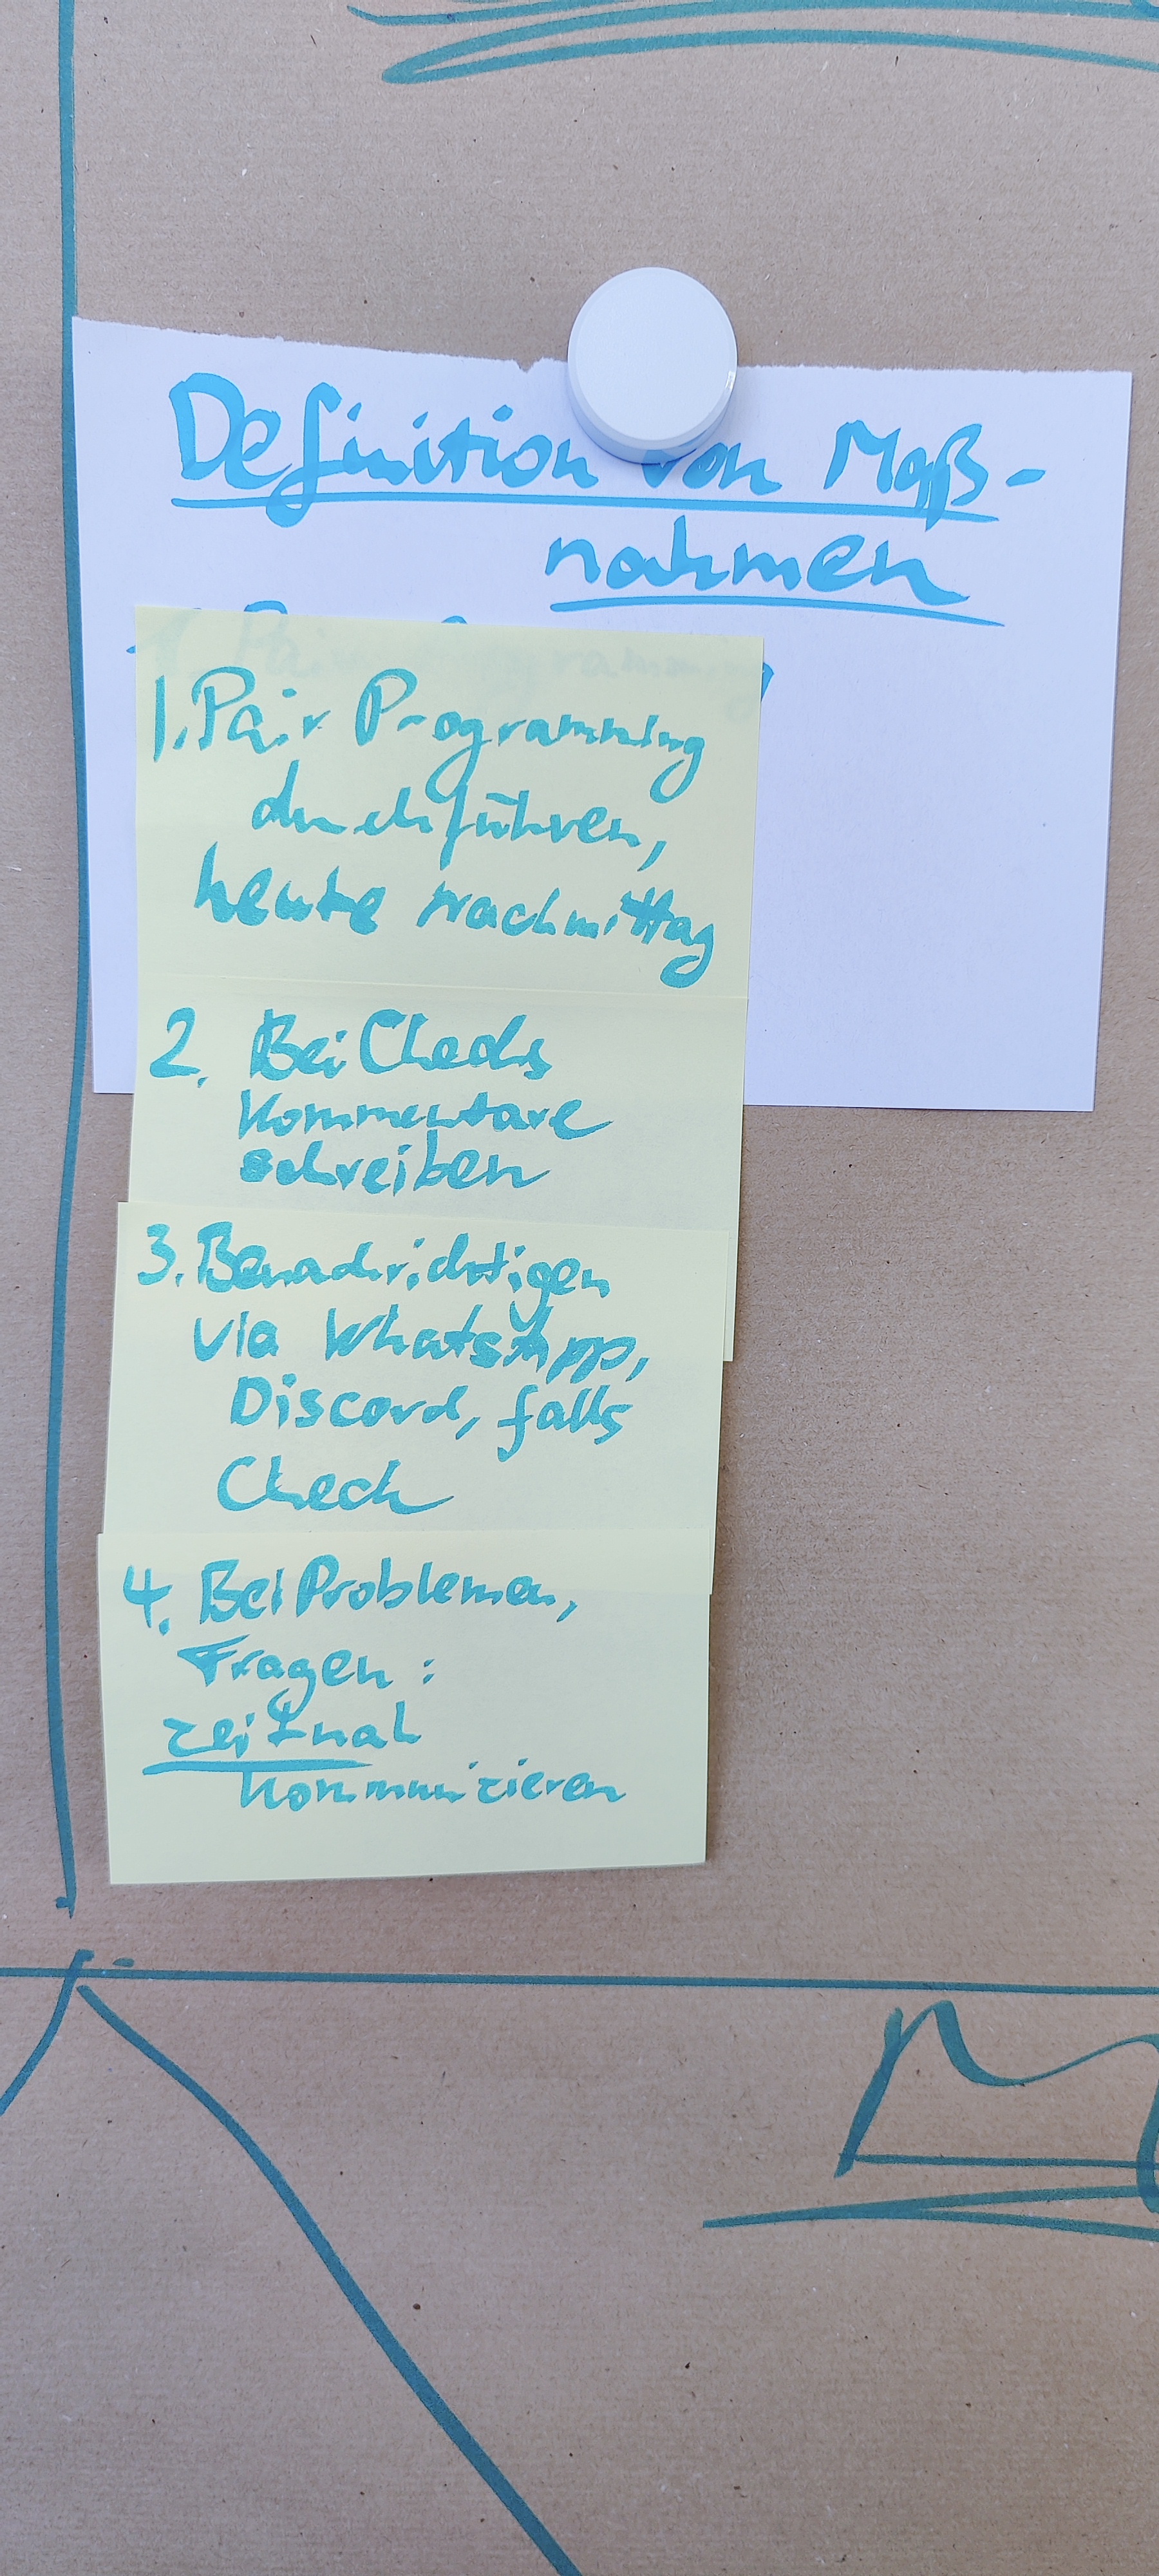 Definition von Maß-
nahmen
1. Pair Programming
durchführen,
heute Nachmittag
2. Bei Checks
Kommentare
schreiben
3. Benachrichtigen
via WhatsApp,
Discord, falls
Check
4. Bei Problemen,
Fragen:
zeitnah
kommunizieren